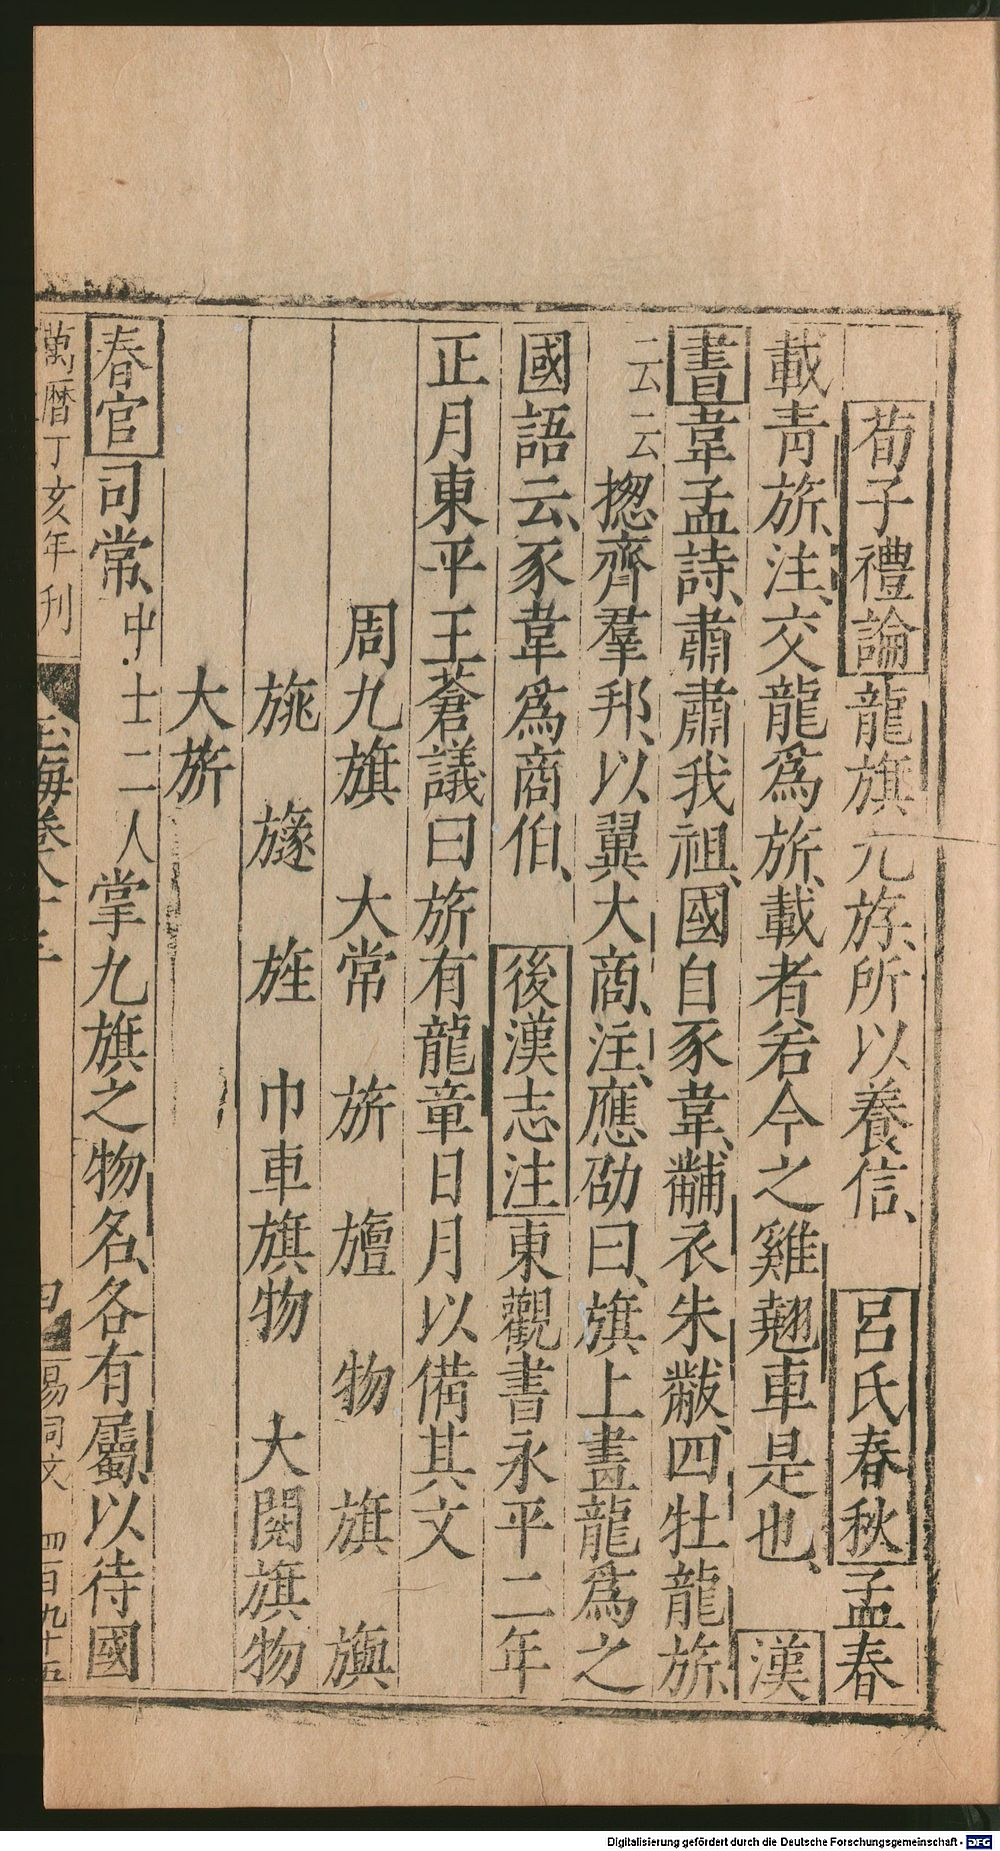 荀子禮論龍旗九斿、所以養信、　呂氏春秋孟春
載青旂、注、交龍爲旂、載者若今之雞翹車是也、　漢
書韋孟詩、肅肅我祖、國自豕韋、黼衣朱黻、四牡龍旂、
云云揔齊羣邦、以翼大商、注、應劭曰、旗上畫龍爲之
國語云、豕韋爲商伯、　後漢志注東觀書永平二年
正月東平王蒼議曰旂有龍章日月以備其文
周九旗　大常　旂　旜　物　旗　旟
旐　旞　旌　巾車旗物　大閱旗物
大旂
春官司常、中士二人掌九旗之物名、各有屬、以待國
萬曆丁亥年刊　玉海卷八十三　楊同文　四百九十五
Digitalisierung gefördert durch die Deutsche Forschungsgemeinschaft - DFG